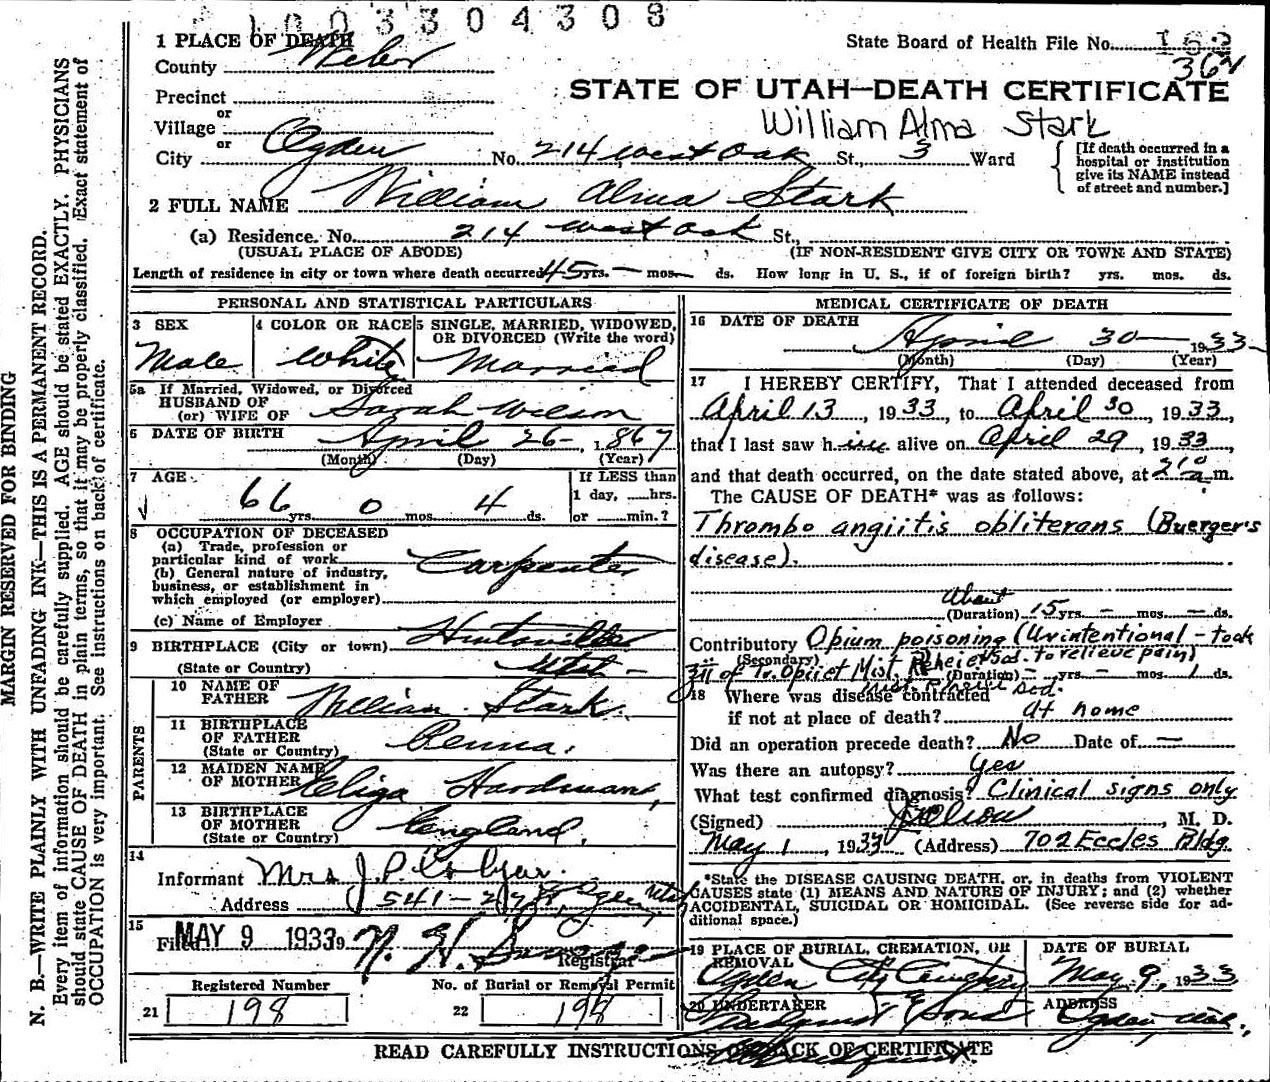 1003304308
1 PLACE OF DEATH
County Weber
State Board of Health File No. 162
362
Precinct
or
Village
or
City Ogden No. 214 West Oak St., 3 Ward
STATE OF UTAH—DEATH CERTIFICATE
William Alma Stark
[If death occurred in a
hospital or institution
give its NAME instead
of street and number.]
2 FULL NAME William Alma Stark
(a) Residence. No. 214 West Oak St.,
(USUAL PLACE OF ABODE) (IF NON-RESIDENT GIVE CITY OR TOWN AND STATE)
Length of residence in city or town where death occurred 45 yrs. — mos. — ds. How long in U. S., if of foreign birth? yrs. mos. ds.
PERSONAL AND STATISTICAL PARTICULARS
3 SEX
Male
4 COLOR OR RACE
White
5 SINGLE, MARRIED, WIDOWED,
OR DIVORCED (Write the word)
Married
5a If Married, Widowed, or Divorced
HUSBAND OF
(or) WIFE OF Sarah Wilson
6 DATE OF BIRTH April 26 — 1867
(Month) (Day) (Year)
7 AGE
66 yrs. 0 mos. 4 ds.
If LESS than
1 day, ......hrs.
or ......min.?
8 OCCUPATION OF DECEASED
(a) Trade, profession or
particular kind of work Carpenter
(b) General nature of industry,
business, or establishment in
which employed (or employer)
(c) Name of Employer
9 BIRTHPLACE (City or town) Huntsville
(State or Country) Utah —
PARENTS
10 NAME OF
FATHER William Stark
11 BIRTHPLACE
OF FATHER
(State or Country) Penna.
12 MAIDEN NAME
OF MOTHER Eliza Hardman,
13 BIRTHPLACE
OF MOTHER
(State or Country) England.
14
Informant Mrs J. P.
Address 541 - Ogden Utah
15
Filed MAY 9 1933 9
Registrar
Registered Number
21 198
No. of Burial or Removal Permit
22 198
MEDICAL CERTIFICATE OF DEATH
16 DATE OF DEATH
April 30 — 1933
(Month) (Day) (Year)
17 I HEREBY CERTIFY, That I attended deceased from
April 13, 1933, to April 30, 1933,
that I last saw him alive on April 29, 1933,
and that death occurred, on the date stated above, at 210 a.m.
The CAUSE OF DEATH* was as follows:
Thrombo angiitis obliterans (Buerger's
disease).
About
(Duration) 15 yrs. — mos. — ds.
Contributory Opium poisoning (Unintentional - took
(Secondary) of Tr. Opii et Mist. Rhei et Sod. to relieve pain)
(Duration) — yrs. — mos. 1 ds.
Mist Rhei et Sod.
18 Where was disease contracted
if not at place of death? At home
Did an operation precede death? No Date of —
Was there an autopsy? Yes
What test confirmed diagnosis? Clinical signs only
(Signed) , M. D.
May 1, 1933 (Address) 702 Eccles Bldg.
*State the DISEASE CAUSING DEATH, or, in deaths from VIOLENT
CAUSES state (1) MEANS AND NATURE OF INJURY; and (2) whether
ACCIDENTAL, SUICIDAL OR HOMICIDAL. (See reverse side for ad-
ditional space.)
19 PLACE OF BURIAL, CREMATION, OR
REMOVAL
Ogden City Cemetery
DATE OF BURIAL
May 9, 1933
20 UNDERTAKER
Lindquist & Sons
ADDRESS
Ogden, Utah.
READ CAREFULLY INSTRUCTIONS ON BACK OF CERTIFICATE
MARGIN RESERVED FOR BINDING
N. B.—WRITE PLAINLY WITH UNFADING INK—THIS IS A PERMANENT RECORD.
Every item of information should be carefully supplied. AGE should be stated EXACTLY. PHYSICIANS
should state CAUSE OF DEATH in plain terms, so that it may be properly classified. Exact statement of
OCCUPATION is very important. See instructions on back of certificate.